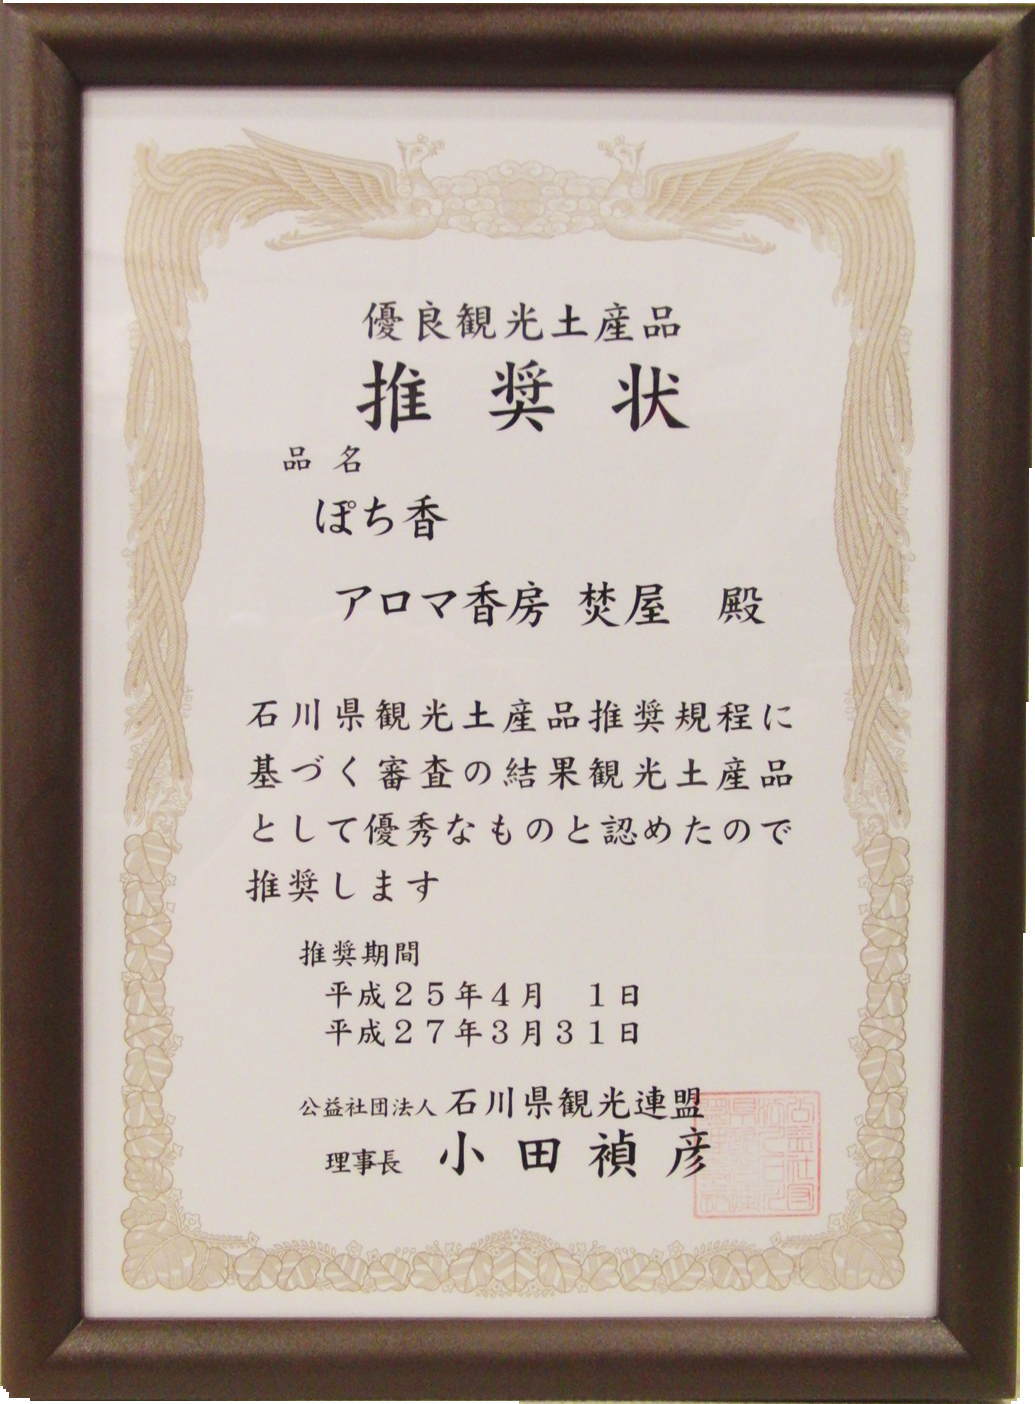 優良観光土産品
推奨状
品名
ぽち香
アロマ香房 焚屋　殿
石川県観光土産品推奨規程に
基づく審査の結果観光土産品
として優秀なものと認めたので
推奨します
推奨期間
平成２５年４月　１日
平成２７年３月３１日
公益社団法人 石川県観光連盟
理事長　小田禎彦